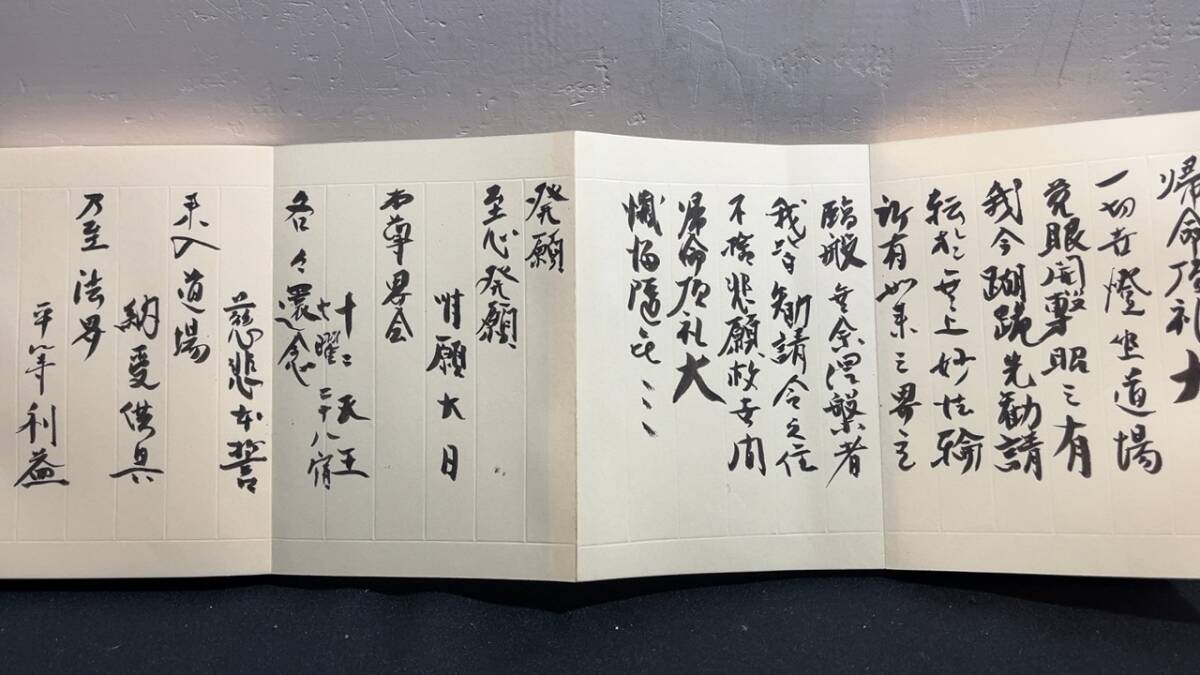 帰命頂礼大
一切世燈坐道場
覚眼開敷昭三有
我今跪先勧請
転於無上妙法輪
所有如来三界主
臨般無余涅槃者
我皆勧請令久住
不捨悲願救世間
帰命頂礼大
懺悔随㐂〻〻
発願
至心発願
惟願大日
本尊界会
十二天王
七曜二十八宿
各々還念
慈悲本誓
来入道場
納受供具
乃至法界
平等利益